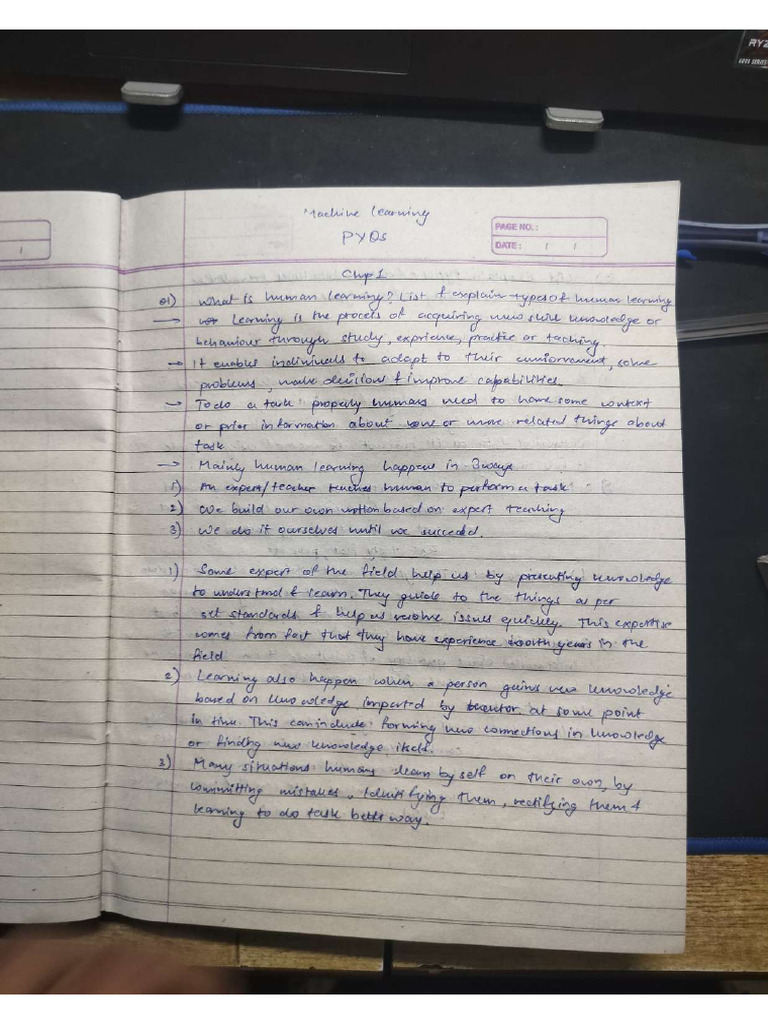 RYZ
Machine learning
PYQs
PAGE NO. :
DATE : / /
Chp 1
Q1) What is human learning? List & explain types of human learning
→ Learning is the process of acquiring new skill knowledge or
behaviour through study, exprience, practice or taching.
→ It enables individuals to adapt to their environment, solve
problems, make decisions & improve capabilities.
→ To do a task properly humans need to have some context
or prior information about one or more related things about
task
→ Mainly human learning happens in 3 ways
1) An expert/teacher teaches human to perform a task
2) We build our own notion based on expert teaching
3) We do it ourselves until we succeed.
1) Some expert of the field help us by presenting knowledge
to understand & learn. They guide to the things as per
set standards & help us resolve issues quickly. This expertise
comes from fact that they have experience worth years in the
field
2) Learning also happen when a person gains new knowledge
based on knowledge imparted by at some point
in time. This can include forming new connections in knowledge
or finding new knowledge itself.
3) Many situations humans learn by self on their own, by
committing mistakes, identifying them, rectifying them &
learning to do task better way.